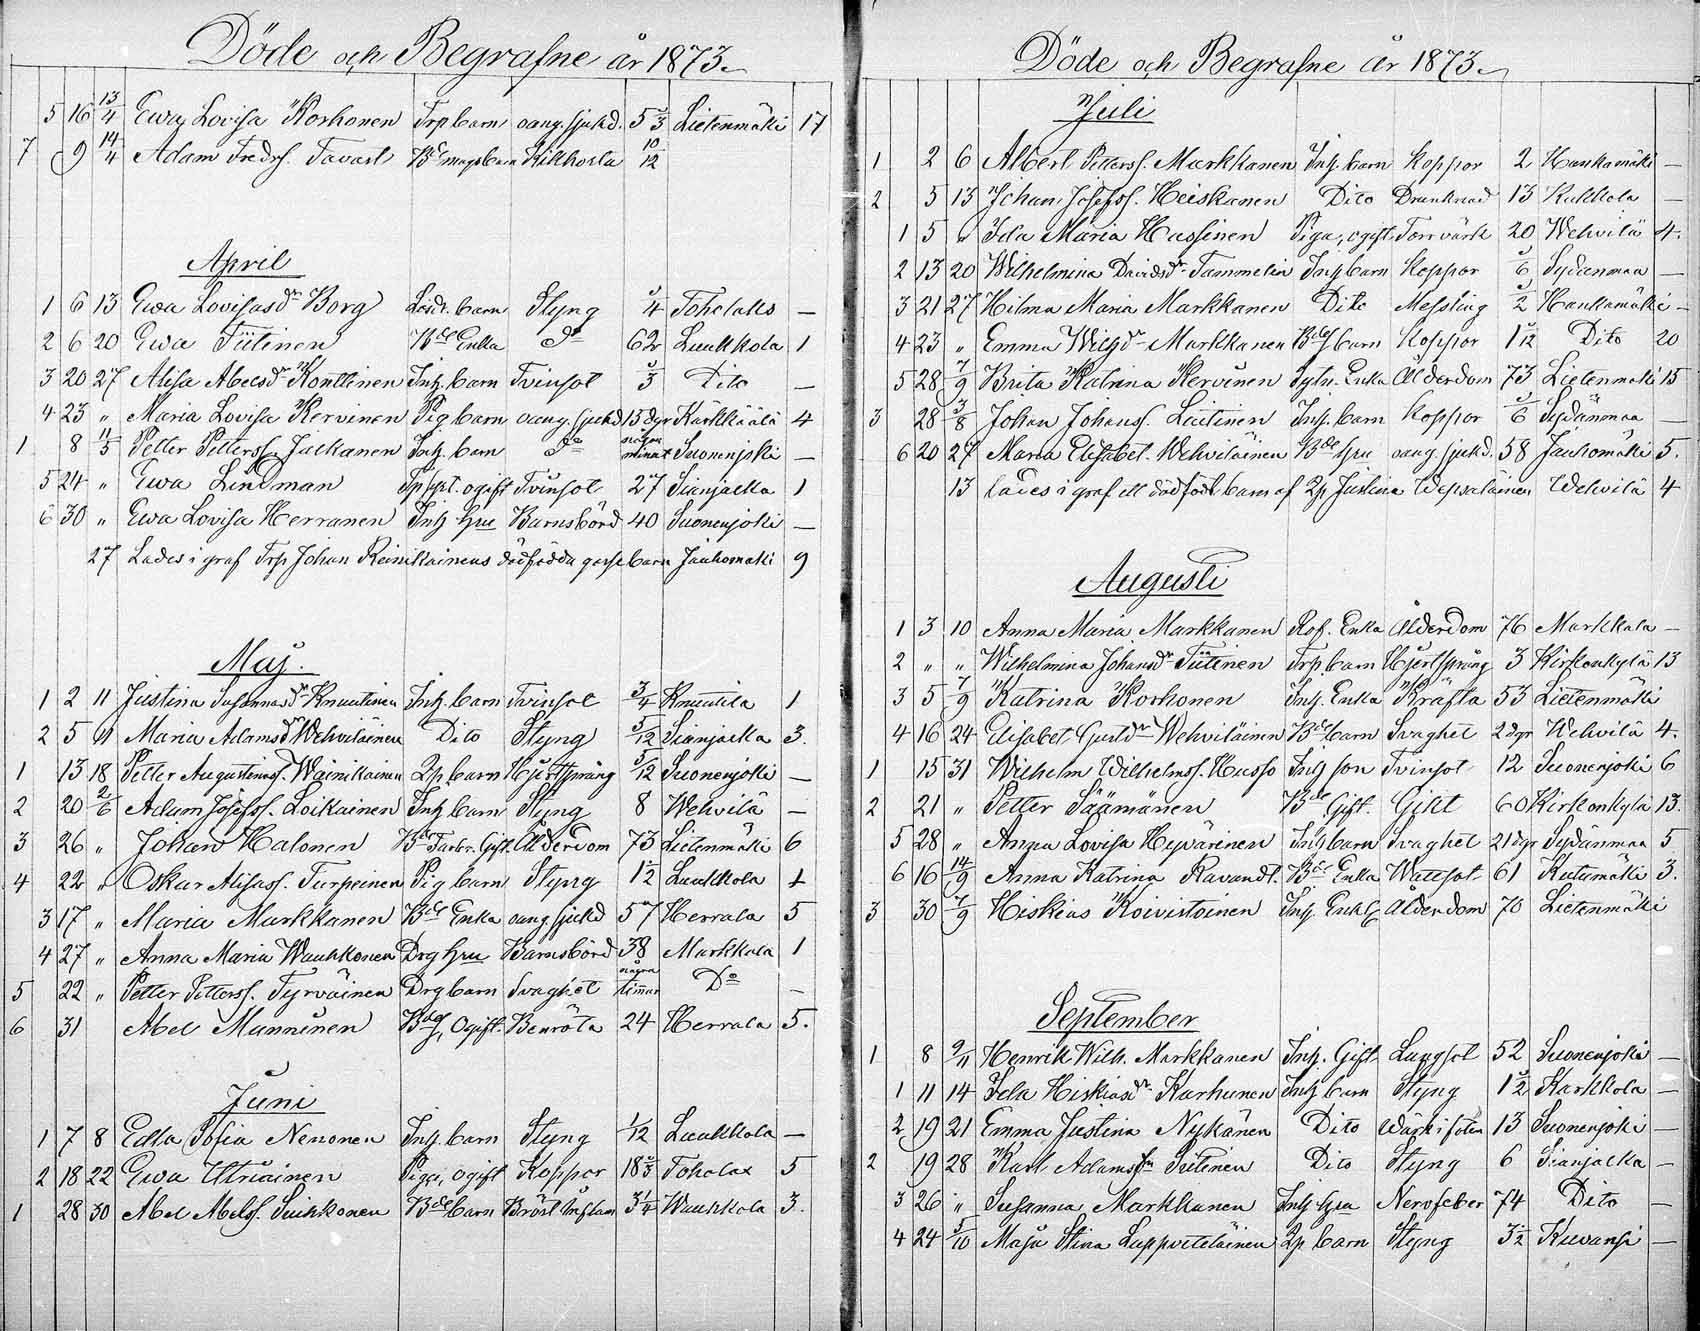 Döde och Begrafne år 1873.
5 16 13/4 Ewa Lovisa Korhonen Trp barn oang. sjukd. 5 2/3 Lietenmäki 17
7 9 14/4 Adam Fredrs. Tavast barn Kikhosta 10/12
April
1 6 13 Ewa Lovisasdr Borg barn Styng 3/4 Toholaks —
2 6 20 Ewa Tiitinen Bde Enka do 62 Luukkola 1
3 20 27 Alisa Abelsdr Konttinen Inh. barn Tvinsot Dito —
4 23 " Maria Lovisa Kervinen Pig barn oang. sjukd 13 dgr Kärkkäälä 4
1 8 11/5 Petter Petterss. Jalkanen Inh. barn do några minut Suonenjoki —
5 24 " Ewa Lindman ogift Tvinsot 27 Sianjalka 1
6 30 " Ewa Lovisa Herranen Inh hru Barnsbörd 40 Suonenjoki —
27 Lades i graf Trp Johan Reinikainens dödfödda gossebarn Jauhomäki 9
Maj.
1 2 11 Justina Susannasdr Knuutinen Inh. barn Tvinsot 3/4 Knuutila 1
2 5 11 Maria Adamsdr Wehviläinen Dito Styng 5/12 Sianjalka 3.
1 13 18 Petter Augustinuss. Wäinikäinen Lp barn Hjertsprång 5/12 Suonenjoki —
2 20 2/6 Adam Josefss. Loikainen Inh barn Styng 8 Wehvilä —
3 26 " Johan Halonen Bde Farbr. Gift. Ålderdom 73 Lietenmäki 6
4 22 " Oskar Alisass. Turpeinen Pig barn Styng 1 1/2 Luukkola 1
3 17 " Maria Markkanen Bde Enka oang. sjukd 57 Herrala 5
4 27 " Anna Maria Wauhkonen Drg hru Barnsbörd 38 Markkala 1
5 22 " Petter Petterss. Tyrväinen Drg barn Svaghet några timmar Do —
6 31 Abel Manninen Bdes, Ogift. Benröta 24 Herrala 5.
Juni
1 7 8 Edla Sofia Nenonen Inh. barn Styng 1/12 Luukkola —
2 18 22 Ewa Utriainen Piga, ogift Koppor 18 2/3 Toholax 5
1 28 30 Abel Abelss. Suihkonen Bde barn Bröst Inflam 3 1/4 Wauhkola 3.
Döde och Begrafne år 1873.
Juli
1 2 6 Albert Petterss. Markkanen Inh. barn Koppor 2 Haukamäki —
2 5 13 Johan Josefss. Heiskanen Dito Drunknad 13 Kukkola —
1 5 " Ida Maria Hassinen Piga, ogift Torrvärk 20 Wehvilä 4.
2 13 20 Wilhelmina Davidsdr Tammelin Inh barn Koppor Sydänmaa —
3 21 27 Hilma Maria Markkanen Dito Messling Haukamäki —
4 23 " Emma Wilhdr Markkanen Bdes barn Koppor 1 Dito 20
5 28 7/9 Brita Katrina Kervinen Enka Ålderdom 73 Lietenmäki 15
3 28 3/8 Johan Johanss. Liitinen Inh. barn Koppor Sydänmaa —
6 20 27 Maria Elisabet Wehviläinen Bde hru oang. sjukd. 58 Jauhomäki 5.
13 lades i graf ett dödfödt barn af Lp Justina Wepsäläinen Wehvilä 4
Augusti
1 3 10 Anna Maria Markkanen Rof. Enka Ålderdom 76 Markkala —
2 " " Wilhelmina Johansdr Tiitinen Trp barn Hjertsprång 3 Kirkonkylä 13
3 5 7/9 Katrina Korhonen Inh. Enka Kräfta 53 Lietenmäki
4 16 24 Elisabet Gustdr Wehviläinen Bde barn Svaghet 2 dgr Wehvilä 4.
1 15 31 Wilhelm Wilhelmss. Husso Inh son Tvinsot 12 Suonenjoki 6
2 21 " Petter Säämänen Bde Gift. Gikt 60 Kirkonkylä 13.
5 28 " Anna Lovisa Hyvärinen Inh barn Svaghet 21 dgr Sydänmaa 5
6 16 14/9 Anna Katrina Ravandt. Bde Enka Wattsot 61 Kutumäki 3.
3 30 7/9 Hiskias Koivistoinen Inh. Enkl Ålderdom 70 Lietenmäki
September
1 8 9/11 Henrik Wilh. Markkanen Inh. Gift Lungsot 52 Suonenjoki —
1 11 14 Ida Hiskiasdr Karhunen Inh barn Styng 1 1/2 Karkkola —
2 19 21 Emma Justina Nykänen Dito Wärk i foten 13 Suonenjoki —
2 19 28 Karl Adamss Sutinen Dito Styng 6 Sianjalka —
3 26 " Susanna Markkanen Inh hru Nervfeber 74 Dito —
4 24 5/10 Maja Stina Lappveteläinen Lp barn Styng 3 1/2 Kuvansi —